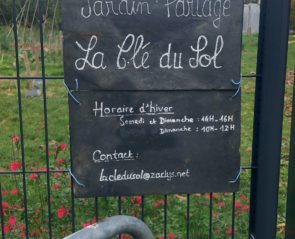 Jardin Partagé
La Clé du Sol
Horaire d'hiver
Samedi et Dimanche : 14H-16H
Dimanche : 10H-12H
Contact :
lacledusol@zaclys.net